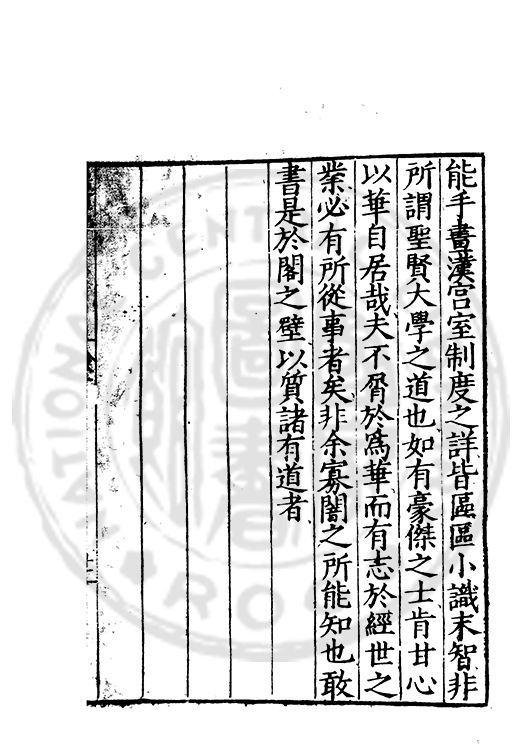 能手畫漢宮室制度之詳皆區區小識末智非
所謂聖賢大學之道也如有豪傑之士肯甘心
以華自居哉夫不屑於為華而有志於經世之
業必有所從事者矣非余寡闇之所能知也敢
書是於閣之壁以質諸有道者